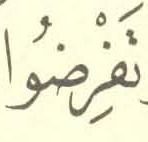 تَفْرِضُوا